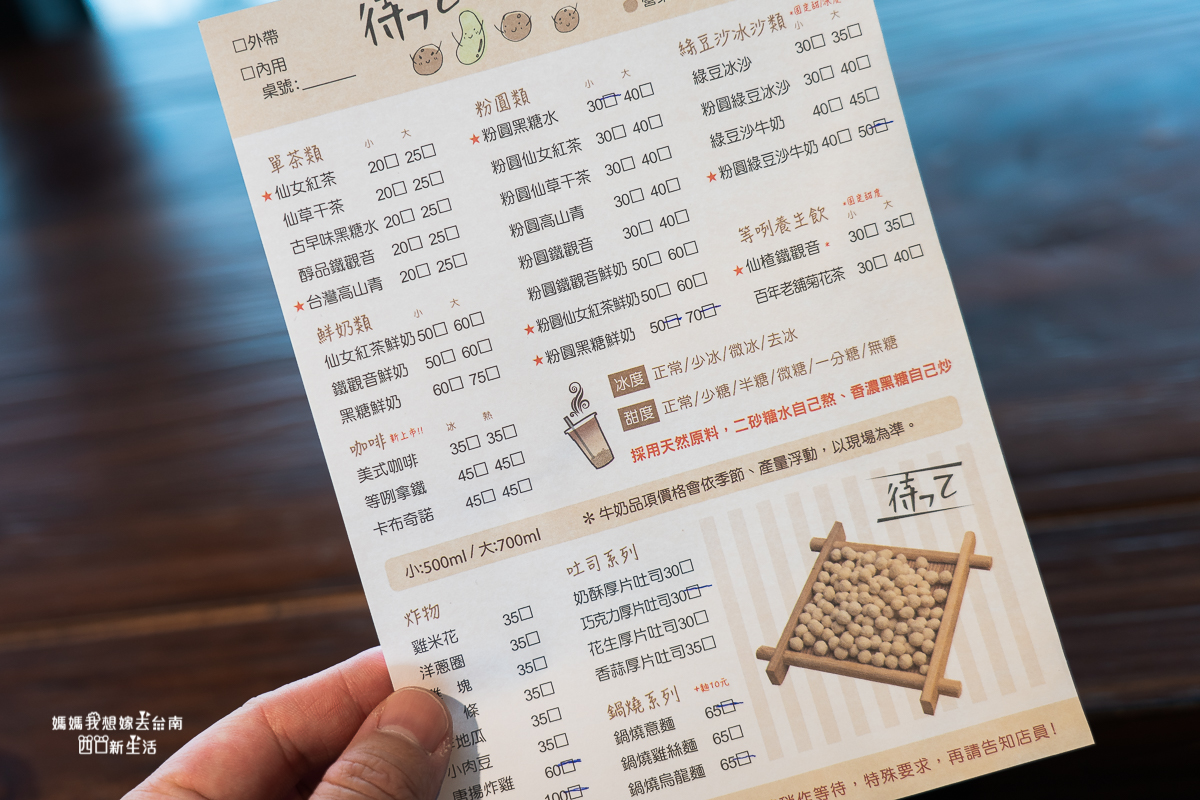 待って
□外帶
□內用
桌號:
單茶類
小 大
★仙女紅茶 20□ 25□
仙草干茶 20□ 25□
古早味黑糖水 20□ 25□
醇品鐵觀音 20□ 25□
★台灣高山青 20□ 25□
鮮奶類
小 大
仙女紅茶鮮奶 50□ 60□
鐵觀音鮮奶 50□ 60□
黑糖鮮奶 60□ 75□
咖啡 新上市!!
冰 熱
美式咖啡 35□ 35□
等咧拿鐵 45□ 45□
卡布奇諾 45□ 45□
粉圓類
小 大
★粉圓黑糖水 30□ 40□
粉圓仙女紅茶 30□ 40□
粉圓仙草干茶 30□ 40□
粉圓高山青 30□ 40□
粉圓鐵觀音 30□ 40□
粉圓鐵觀音鮮奶 50□ 60□
★粉圓仙女紅茶鮮奶 50□ 60□
★粉圓黑糖鮮奶 50□ 70□
綠豆沙冰沙類
小 大
綠豆冰沙 30□ 35□
粉圓綠豆冰沙 30□ 40□
綠豆沙牛奶 40□ 45□
★粉圓綠豆沙牛奶 40□ 50□
等咧養生飲 *固定甜度
小 大
★仙楂鐵觀音* 30□ 35□
百年老舖菊花茶 30□ 40□
冰度 正常/少冰/微冰/去冰
甜度 正常/少糖/半糖/微糖/一分糖/無糖
採用天然原料，二砂糖水自己熬、香濃黑糖自己炒
小:500ml / 大:700ml
＊牛奶品項價格會依季節、產量浮動，以現場為準。
炸物
雞米花 35□
洋蔥圈 35□
塊 35□
條 35□
地瓜 35□
小肉豆 35□
唐揚炸雞 60□
100□
吐司系列
奶酥厚片吐司 30□
巧克力厚片吐司 30□
花生厚片吐司 30□
香蒜厚片吐司 35□
鍋燒系列 +麵10元
鍋燒意麵 65□
鍋燒雞絲麵 65□
鍋燒烏龍麵 65□
待って
作等待，特殊要求，再請告知店員!
媽媽我想嫁去台南
四口新生活